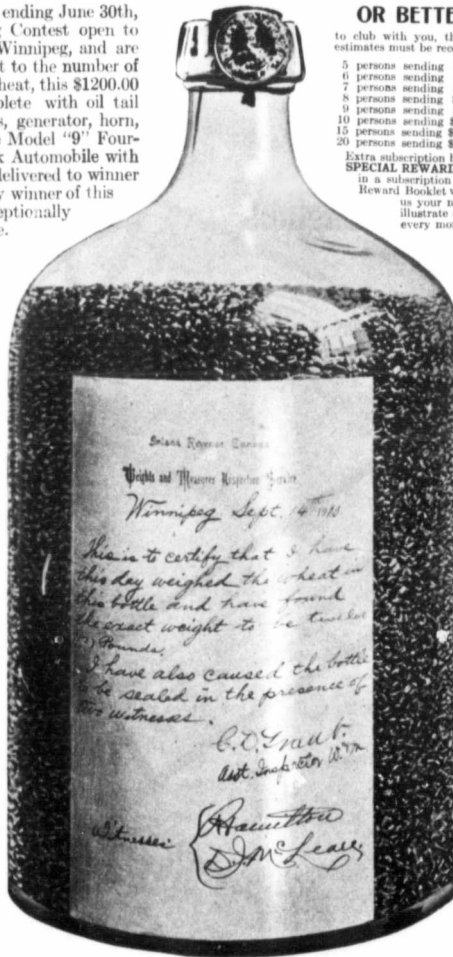 ending June 30th,
Contest open to
Winnipeg, and are
t to the number of
heat, this $1200.00
plete with oil tail
s, generator, horn,
Model “9” Four-
k Automobile with
delivered to winner
y winner of this
eptionally
e.
OR BETTE
to club with you, th
estimates must be rec
5 persons sending
6 persons sending
7 persons sending
8 persons sending
9 persons sending
10 persons sending $
15 persons sending $
20 persons sending $
Extra subscription b
SPECIAL REWARD
in a subscription
Reward Booklet w
us your n
illustrate
every mo
Inland Revenue Canada
Weights and Measures Inspection Service
Winnipeg Sept. 14th 1910
This is to certify that I have
this day weighed the wheat in
this bottle and have found
the exact weight to be twelve
Pounds,
I have also caused the bottle
to be sealed in the presence of
two witnesses.
Asst. Inspector W & M
Witnesses
Hamilton
D. J. McLean